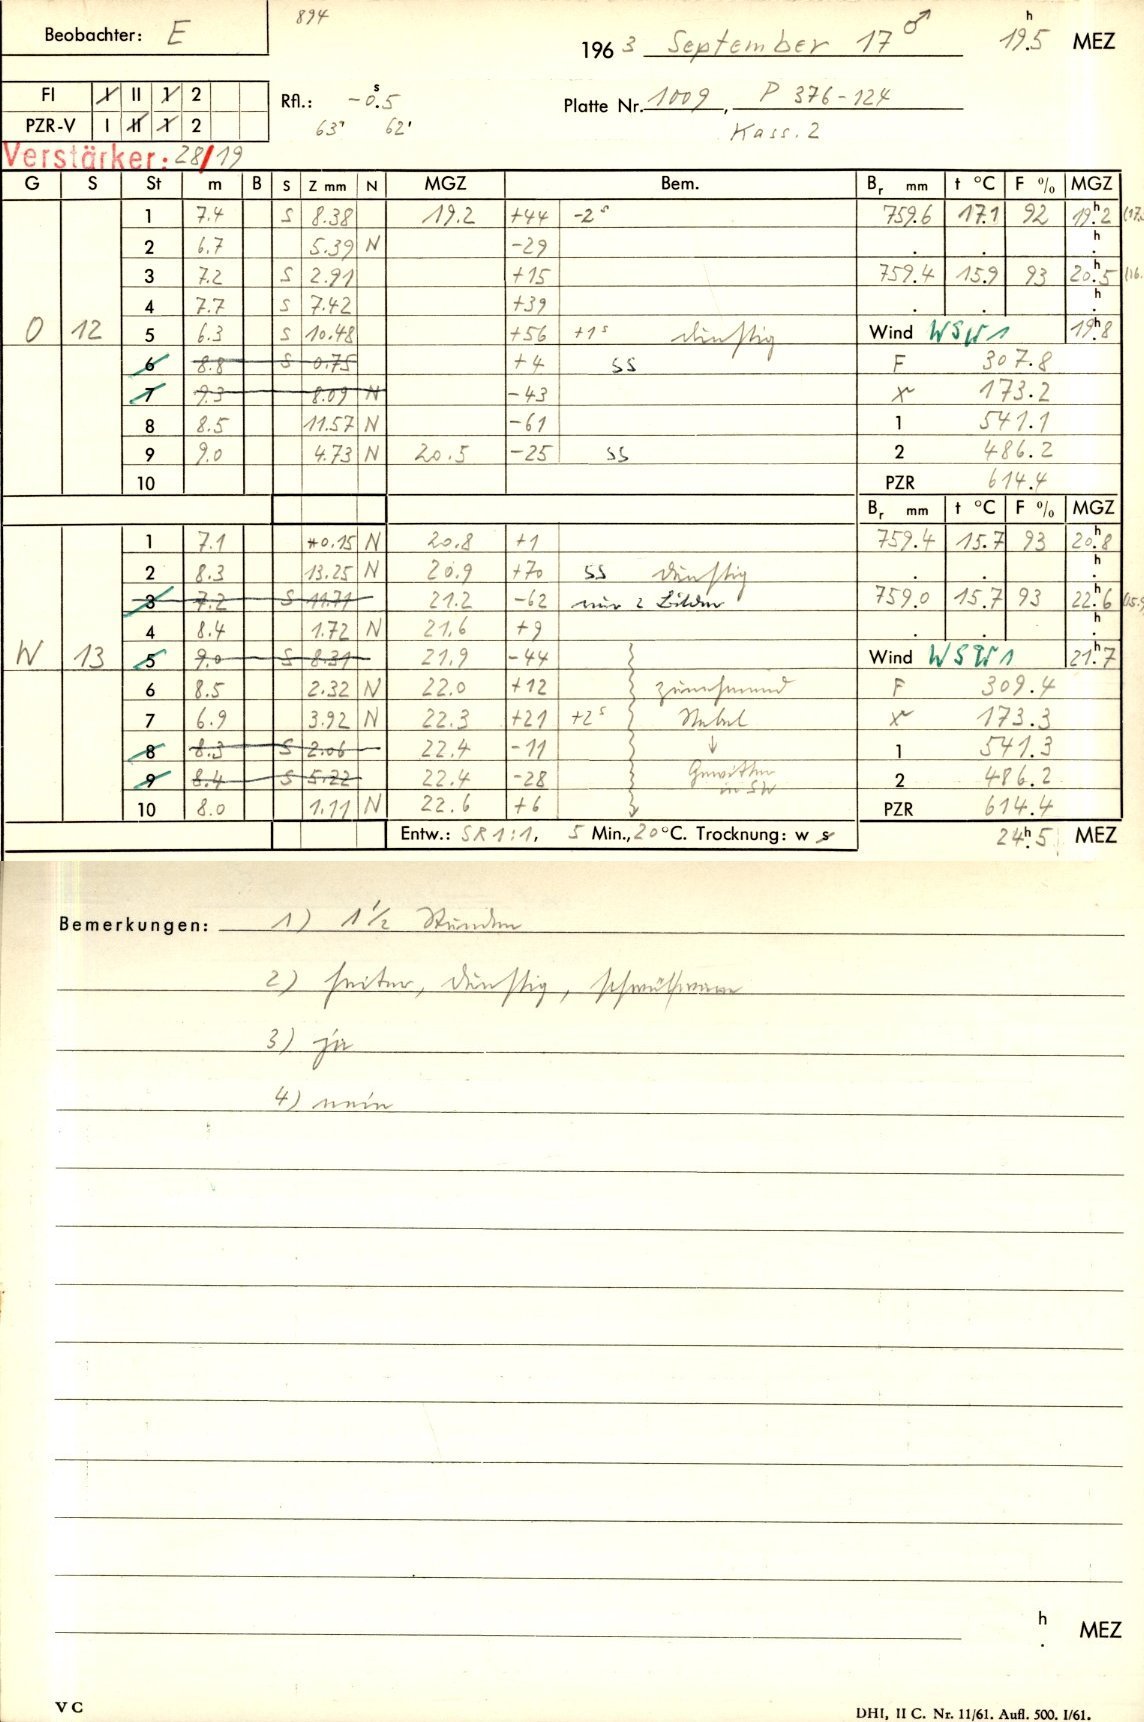 894
Beobachter: E
196 3 September 17 ♂ 19h.5 MEZ
FI I II 1 2
Rfl.: -0s.5
Platte Nr. 1009, P 376-124
PZR-V I II 1 2
63' 62'
Kass. 2
Verstärker: 28/19
G S St m B S Z mm N MGZ Bem. Br mm t °C F % MGZ
1 7.4 S 8.38 19.2 +44 -2s 759.6 17.1 92 19h.2 (17.
2 6.7 5.39 N -29 . . h.
3 7.2 S 2.91 +15 759.4 15.9 93 20h.5 (16.
4 7.7 S 7.42 +39 . . h.
O 12 5 6.3 S 10.48 +56 +1s dunstig Wind WSW 1 19h.8
6 8.8 S 0.75 +4 SS F 307.8
7 9.3 8.09 N -43 173.2
8 8.5 11.57 N -61 1 541.1
9 9.0 4.73 N 20.5 -25 SS 2 486.2
10 PZR 614.4
Br mm t °C F % MGZ
1 7.1 0.15 N 20.8 +1 759.4 15.7 93 20h.8
2 8.3 13.25 N 20.9 +70 SS dunstig . . h.
3 7.2 S 11.71 21.2 -62 nur 2 Bilder 759.0 15.7 93 22h.6 (15.9
4 8.4 1.72 N 21.6 +9 . . h.
W 13 5 9.0 S 8.31 21.9 -44 Wind WSW 1 21h.7
6 8.5 2.32 N 22.0 +12 zunehmend F 309.4
7 6.9 3.92 N 22.3 +21 +2s Nebel 173.3
8 8.3 S 2.06 22.4 -11 ↓ 1 541.3
9 8.4 S 5.22 22.4 -28 Gewitter in SW 2 486.2
10 8.0 1.11 N 22.6 +6 PZR 614.4
Entw.: SR 1:1, 5 Min., 20 °C. Trocknung: w s 24h.5 MEZ
Bemerkungen: 1) 1 1/2 Stunden
2) heiter, dunstig, schwülwarm
3) ja
4) nein
h. MEZ
V C
DHI, II C. Nr. 11/61. Aufl. 500. I/61.